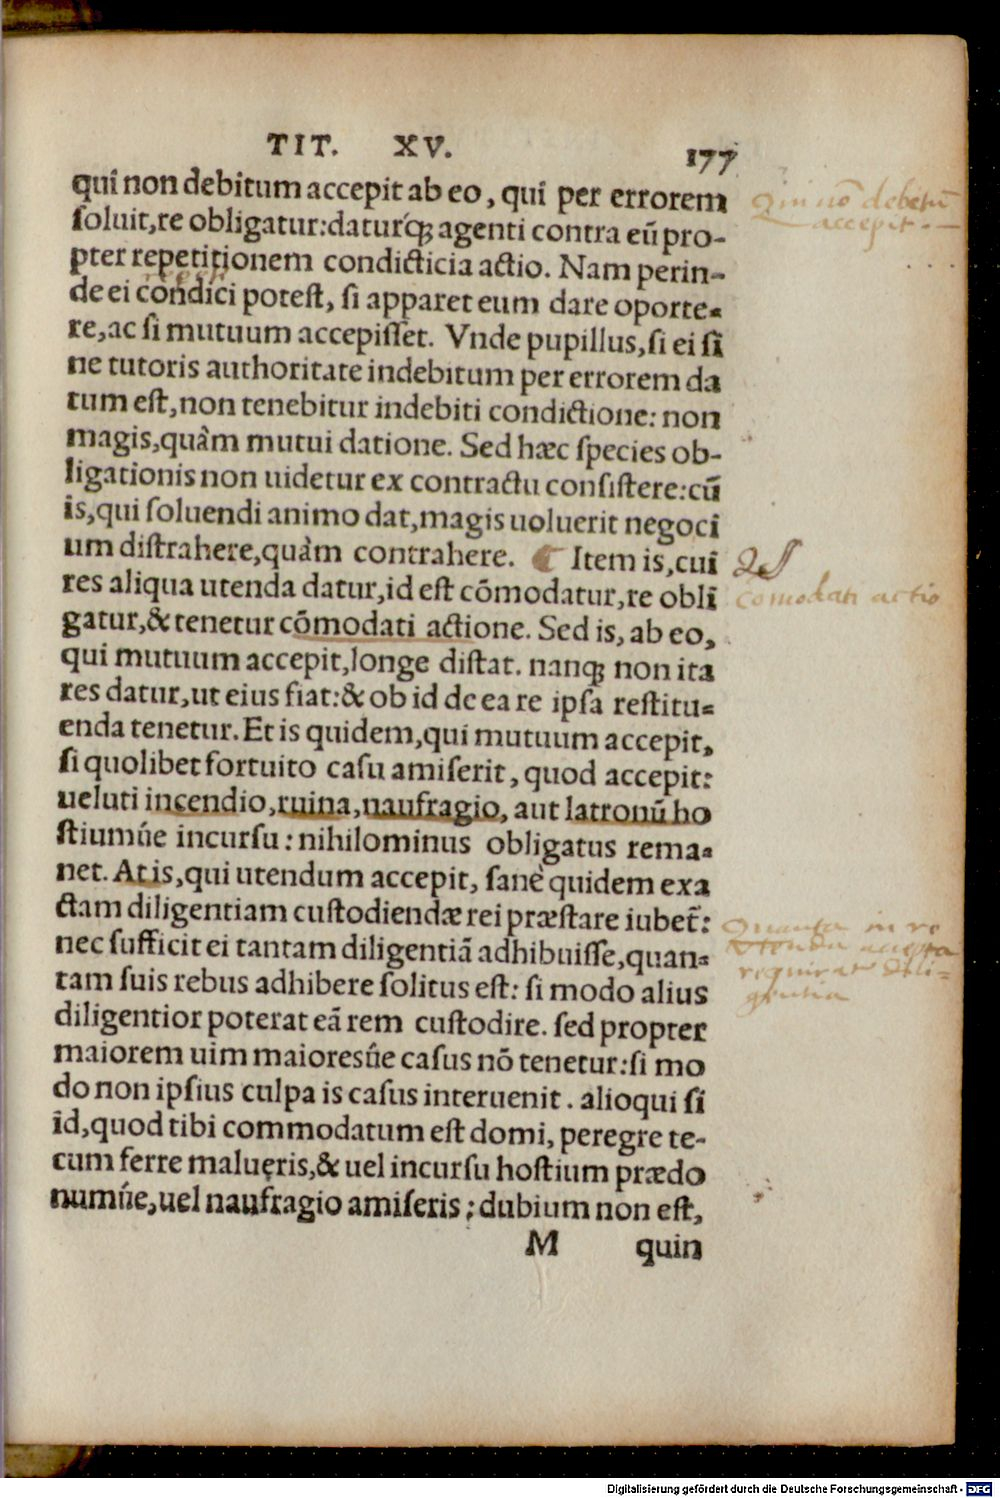 TIT. XV. 177
qui non debitum accepit ab eo, qui per errorem
soluit, re obligatur: daturq́ꝫ agenti contra eũ pro-
pter repetitionem condicticia actio. Nam perin-
de ei condici potest, si apparet eum dare oporte-
re, ac si mutuum accepisset. Vnde pupillus, si ei si
ne tutoris authoritate indebitum per errorem da
tum est, non tenebitur indebiti condictione: non
magis, quàm mutui datione. Sed hæc species ob-
ligationis non uidetur ex contractu consistere: cũ
is, qui soluendi animo dat, magis uoluerit negoci
um distrahere, quàm contrahere. ¶ Item is, cui
res aliqua utenda datur, id est cõmodatur, re obli
gatur, & tenetur cõmodati actione. Sed is, ab eo,
qui mutuum accepit, longe distat. nanqꝫ non ita
res datur, ut eius fiat: & ob id de ea re ipsa restitu-
enda tenetur. Et is quidem, qui mutuum accepit,
si quolibet fortuito casu amiserit, quod accepit:
ueluti incendio, ruina, naufragio, aut latronũ ho
stiumúe incursu: nihilominus obligatus rema-
net. At is, qui utendum accepit, sanè quidem exa
ctam diligentiam custodiendæ rei præstare iubet̃:
nec sufficit ei tantam diligentiã adhibuisse, quan-
tam suis rebus adhibere solitus est: si modo alius
diligentior poterat eã rem custodire. sed propter
maiorem uim maioresúe casus nõ tenetur: si mo
do non ipsius culpa is casus interuenit. alioqui si
id, quod tibi commodatum est domi, peregre te-
cum ferre malueris, & uel incursu hostium prædo
numúe, uel naufragio amiseris; dubium non est,
M quin
Qui nõ debitũ
accepit.
comodati actio
Quanta in re
utenda accepta
requirat dili=
gentia
Digitalisierung gefördert durch die Deutsche Forschungsgemeinschaft - DFG